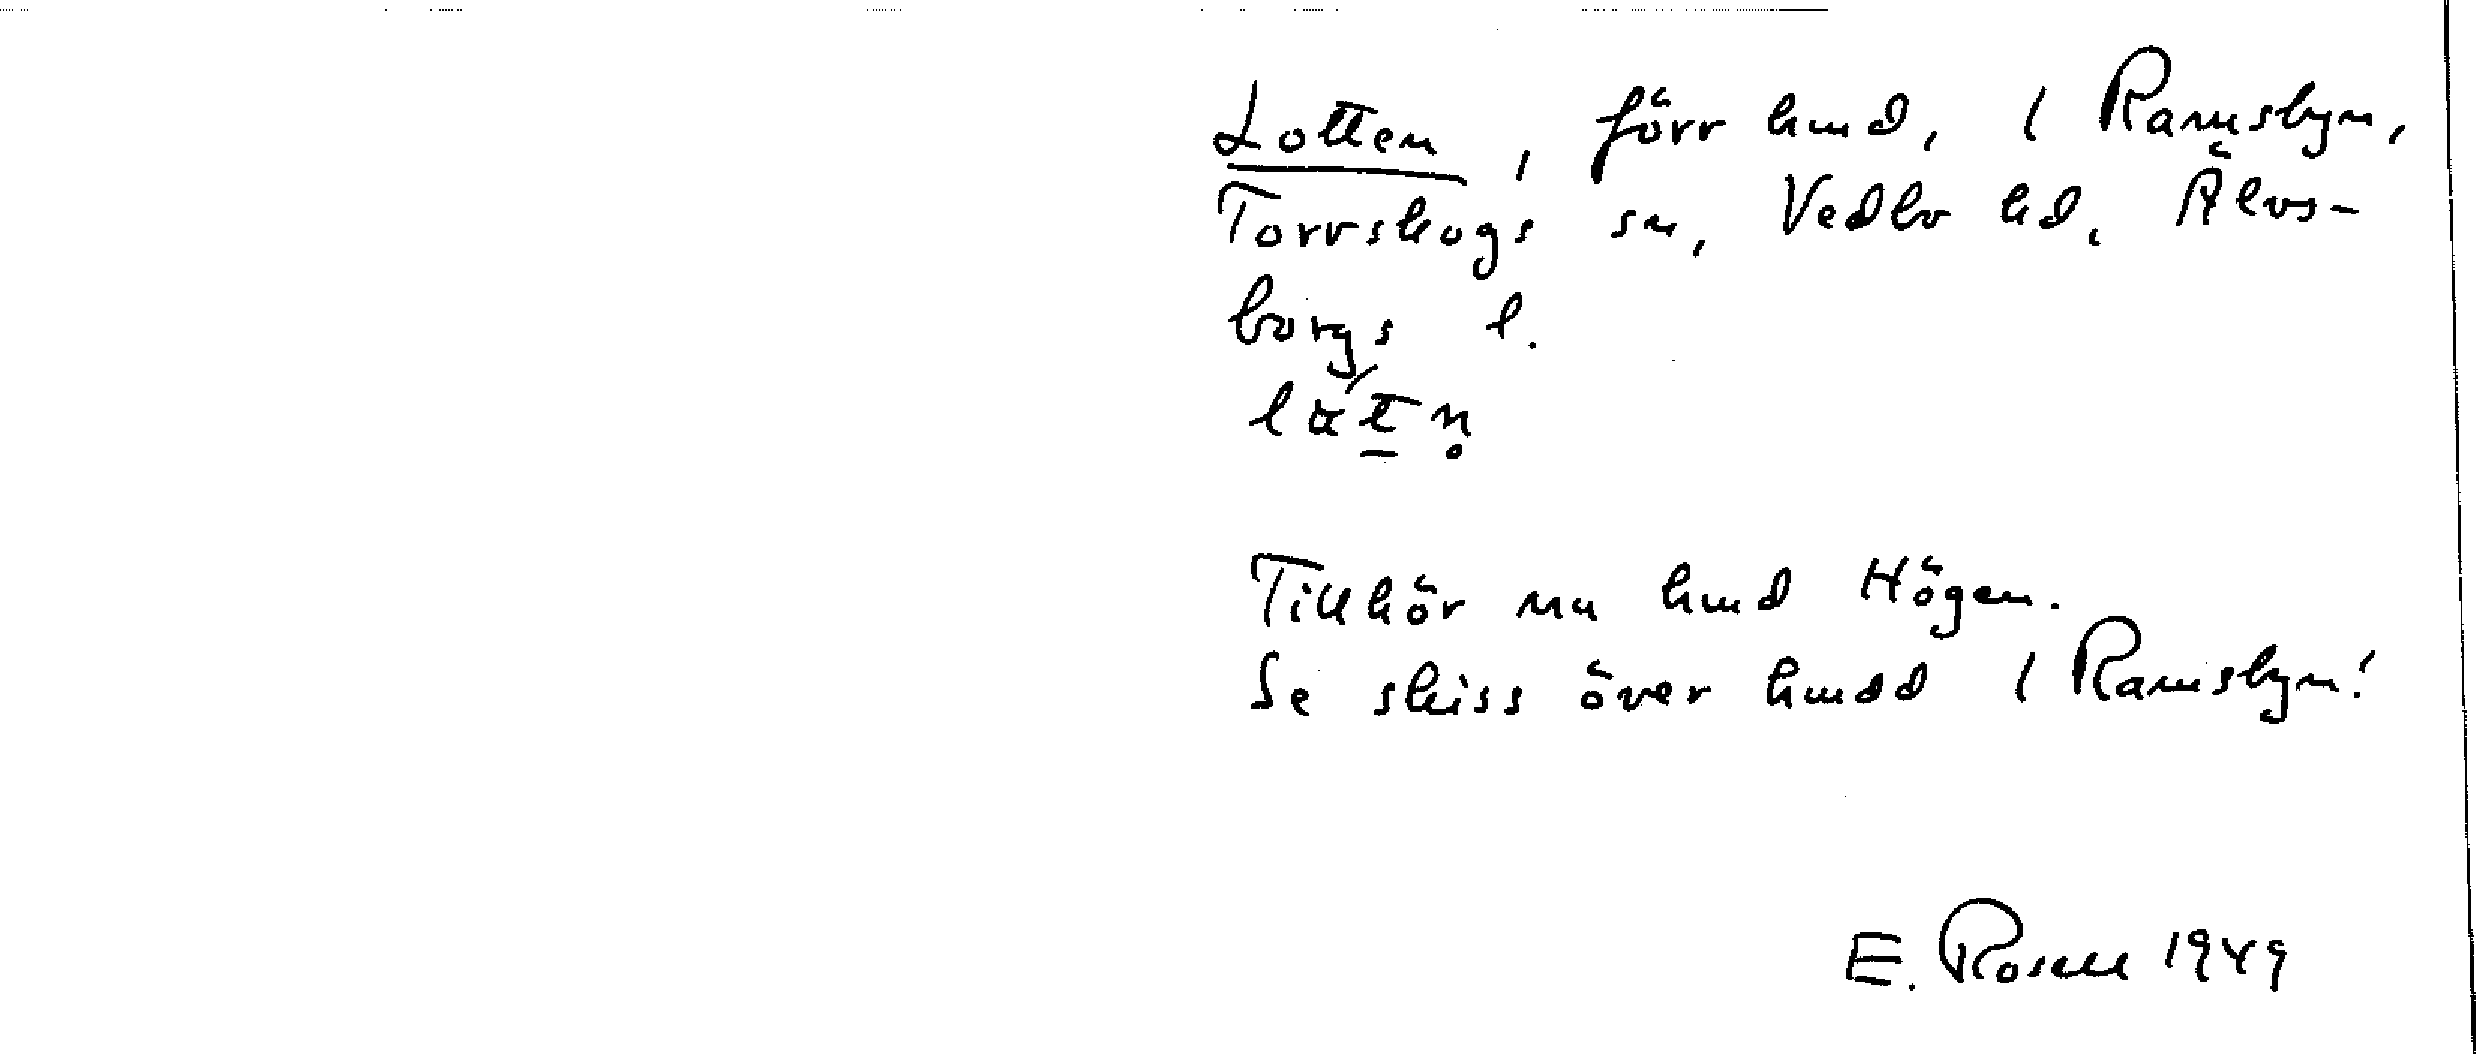 Lotten, förr hmd, i Ramsbyn,
Torrskogs sn, Vedbo hd, Älvs-
borgs l.
Tillhör nu hmd Högen.
Se skiss över hmdd i Ramsbyn!
E. Rosell 1949